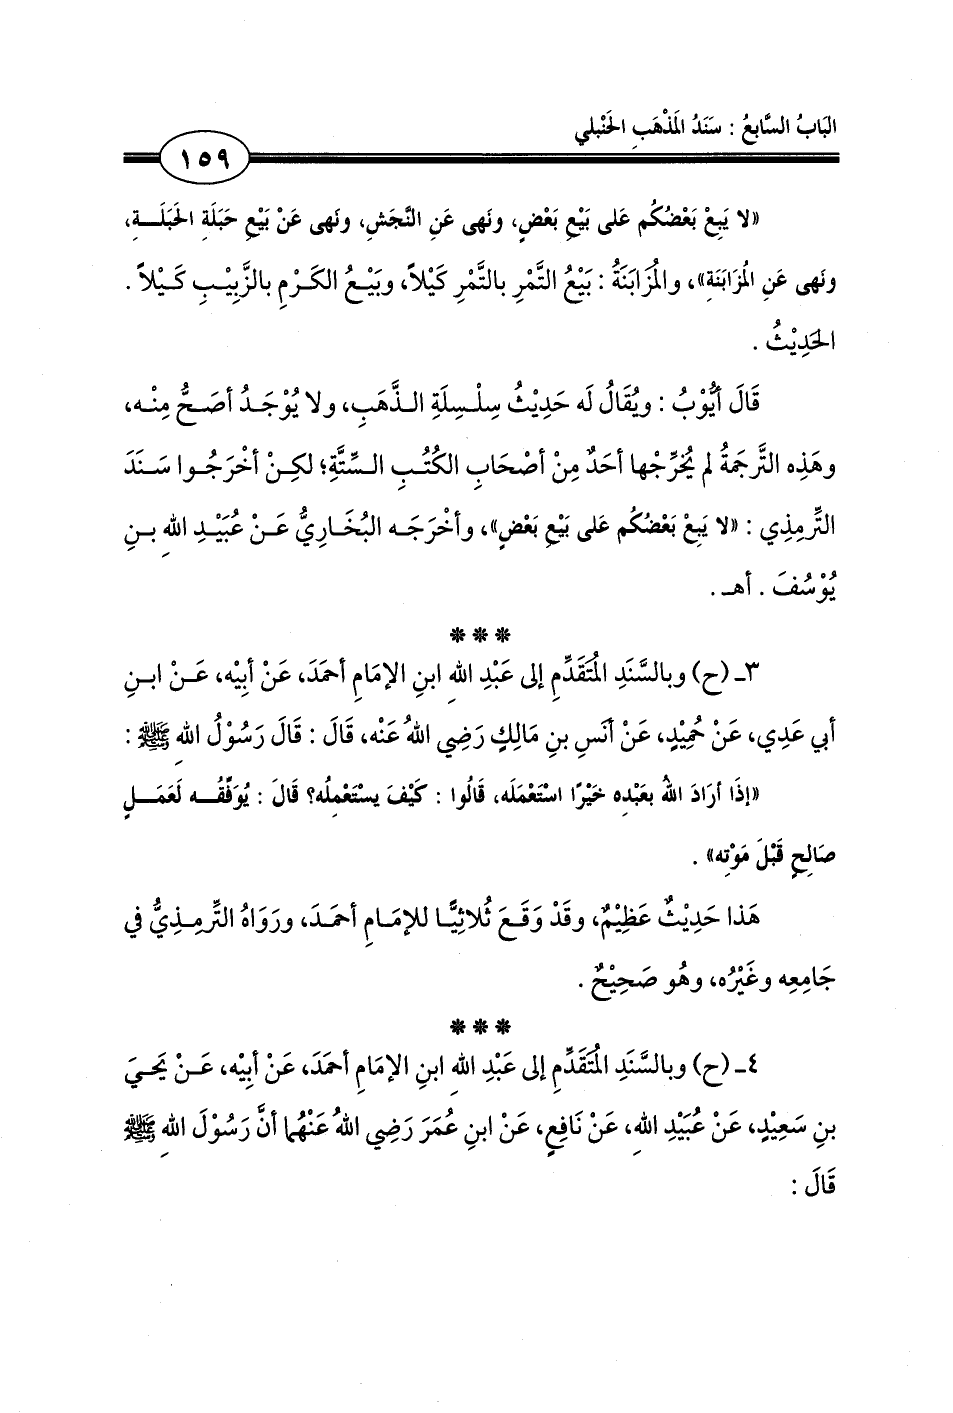 البَابُ السَّابِعُ : سَنَدُ المَذْهَبِ الحَنْبَلي
١٥٩
«لا يَبِعْ بَعْضُكُم عَلى بَيْعِ بَعْضٍ، ونَهى عَنِ النَّجَشِ، ونَهى عَنْ بَيْعِ حَبَلَةِ الحَبَلَـــةِ،
ونَهى عَنِ المُزَابَنَةِ»، والمُزَابَنَةُ : بَيْعُ التَّمْرِ بالتَّمْرِ كَيْلاً، وبَيْــعُ الكَـرْمِ بالزَّبِيْـبِ كَـيْلاً .
الحَدِيْثُ .
قَالَ أيُّوْبُ : ويُقَالُ لَه حَدِيْثُ سِلْـسِلَةِ الـذَّهَبِ، ولا يُوْجَـدُ أصَـحُّ مِنْـه،
وهَذِه التَّرجَمةُ لم يُخرِّجْها أحَدٌ مِنْ أصْحَابِ الكُتُـبِ الـسِّتَّةِ؛ لكِـنْ أخْرَجُـوا سَـنَدَ
التِّرمِذِي : «لا يَبِعْ بَعْضُكُم عَلى بَيْعِ بَعْضٍ»، وأخْرَجَـه البُخَـارِيُّ عَـنْ عُبَيْـدِ اللهِ بـنِ
يُوْسُفَ . أهـ .
* * *
٣ـ (ح) وبالسَّنَدِ المُتَقَدِّمِ إلى عَبْدِ اللهِ ابنِ الإمَامِ أحمَدَ، عَنْ أبِيْه، عَـنْ ابـنِ
أبي عَدِي، عَنْ حُميْدٍ، عَنْ أنَسِ بنِ مَالِكٍ رَضِي اللهُ عَنْه، قَالَ : قَالَ رَسُوْلُ اللهِ ﷺ :
«إذَا أرَادَ اللهُ بعَبْدِه خَيْرًا اسْتَعْمَلَه، قَالُوا : كَيْفَ يسْتَعْمِلُه؟ قَالَ : يُوَفِّقُــه لَعَمَــلٍ
صَالِحٍ قَبْلَ مَوْتِه» .
هَذا حَدِيْثٌ عَظِيْمٌ، وقَدْ وَقَـعَ ثُلاثِيًّـا للإمَـامِ أحمَـدَ، ورَوَاهُ التِّرمِـذِيُّ في
جَامِعِه وغَيْرُه، وهُو صَحِيْحٌ .
* * *
٤ـ (ح) وبالسَّنَدِ المُتَقَدِّمِ إلى عَبْدِ اللهِ ابنِ الإمَامِ أحمَدَ، عَنْ أبِيْه، عَـنْ يَحيَ
بنِ سَعِيْدٍ، عَنْ عُبَيْدِ اللهِ، عَنْ نَافِعٍ، عَنْ ابنِ عُمَرَ رَضِي اللهُ عَنْهُما أنَّ رَسُوْلَ اللهِ ﷺ
قَالَ :